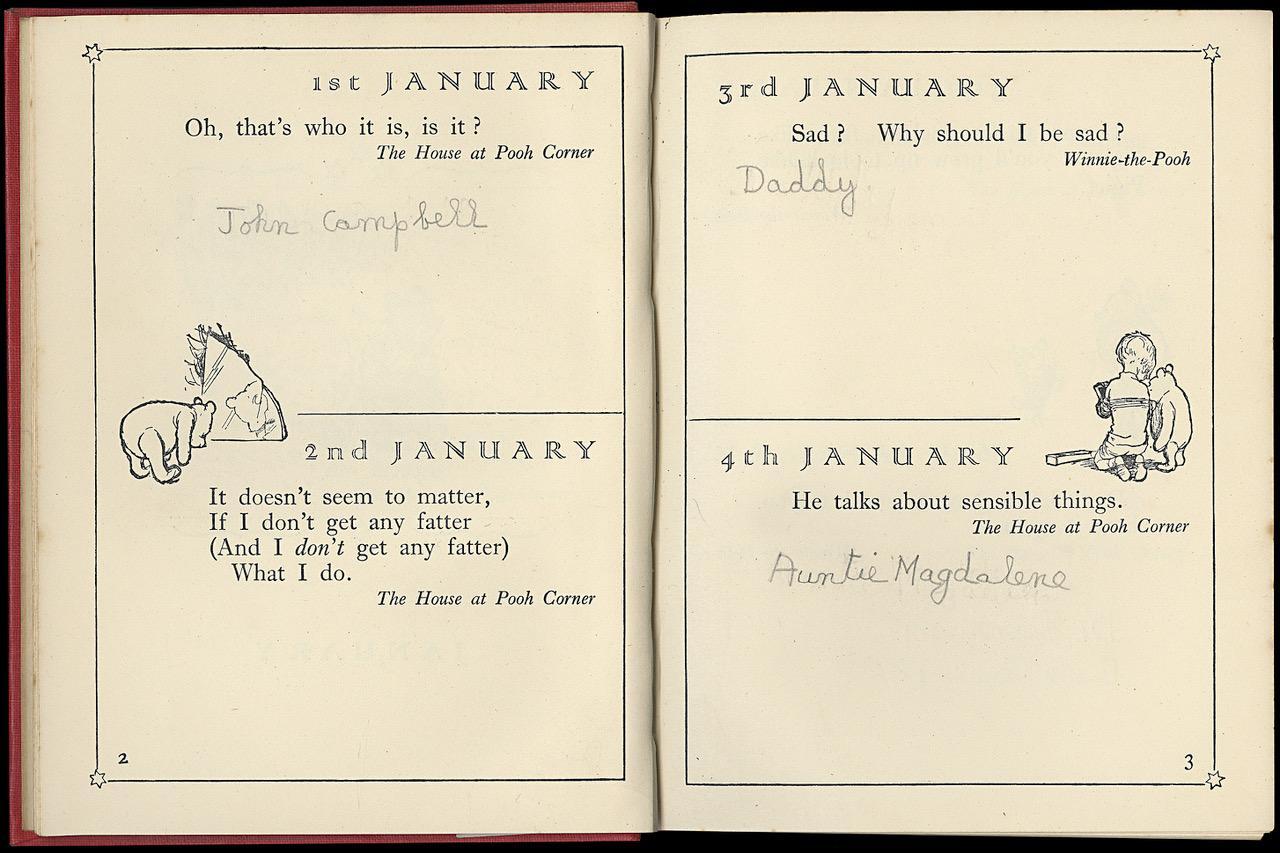 1st JANUARY
Oh, that's who it is, is it ?
The House at Pooh Corner
John Campbell
2nd JANUARY
It doesn't seem to matter,
If I don't get any fatter
(And I don't get any fatter)
What I do.
The House at Pooh Corner
2
3rd JANUARY
Sad ? Why should I be sad ?
Winnie-the-Pooh
Daddy.
4th JANUARY
He talks about sensible things.
The House at Pooh Corner
Auntie Magdalene
3